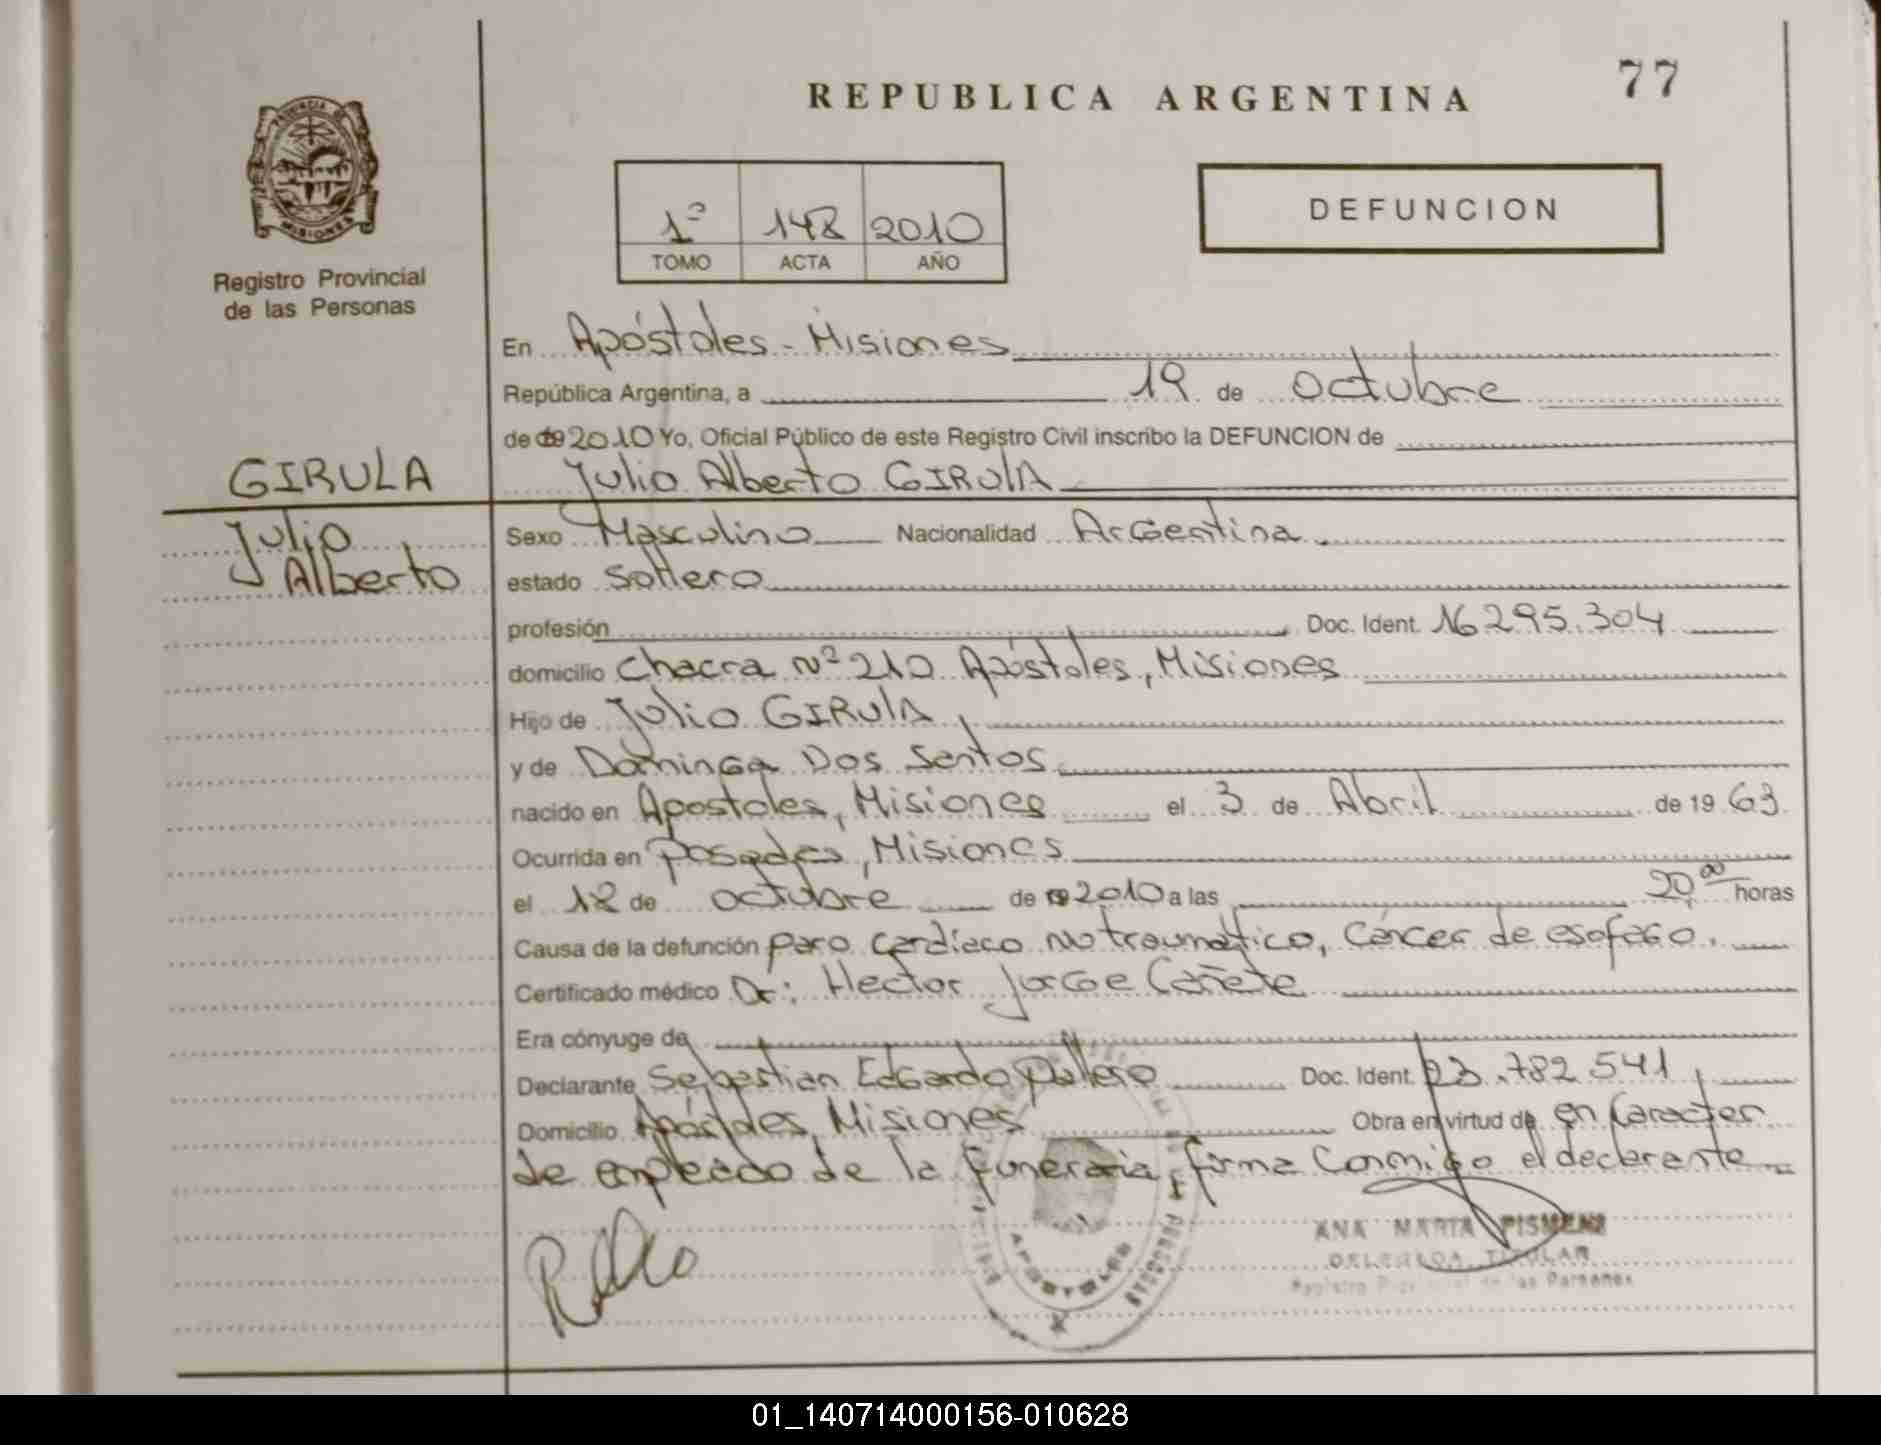 REPUBLICA ARGENTINA
77
PROVINCIA DE MISIONES
Registro Provincial
de las Personas
DEFUNCION
1º 148 2010
TOMO ACTA AÑO
En Apóstoles - Misiones
República Argentina, a 19 de octubre
de 2010 Yo, Oficial Público de este Registro Civil inscribo la DEFUNCION de
GIRULA
Julio Alberto GIRULA
Julio
Alberto
Sexo Masculino Nacionalidad Argentina
estado soltero
profesión Doc. Ident. 16.295.304
domicilio Chacra Nº 210 Apóstoles, Misiones
Hijo de Julio GIRULA
y de Dominga Dos Santos
nacido en Apostoles, Misiones el 3 de Abril de 1963
Ocurrida en Posadas, Misiones
el 18 de octubre de 2010 a las 20,00 horas
Causa de la defunción paro cardíaco no traumático, cáncer de esofago.
Certificado médico Dr: Hector Jorge Cañete
Era cónyuge de
Declarante Sebastian Edgardo Doc. Ident. 23.782.541
Domicilio Apóstoles, Misiones Obra en virtud de en Caracter
de empleado de la funeraria, firma Conmigo el declarante
ANA MARIA
DELEGADA TITULAR
Registro Provincial de las Personas
APOSTOLES
01_140714000156-010628